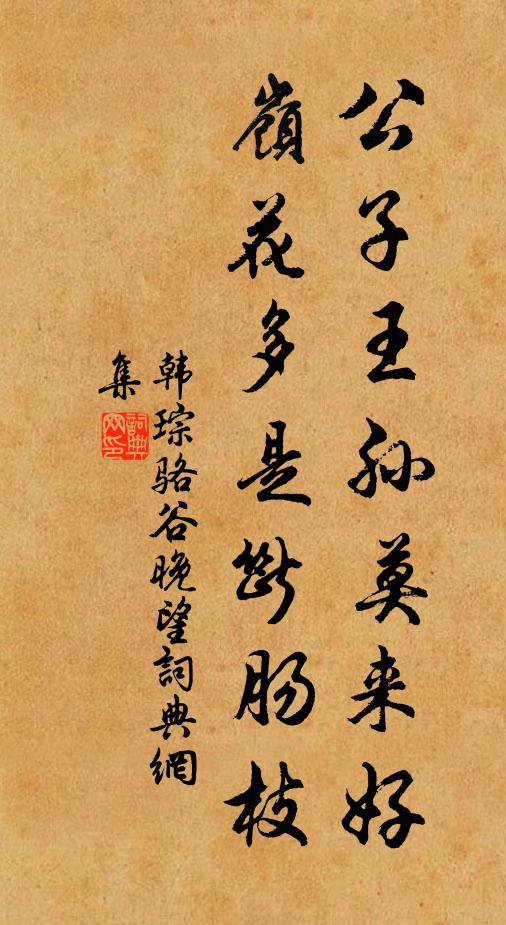 公子王孙莫来好
嶺花多是断肠枝
韩琮骆谷晚望詞典網
集
詞典
网印